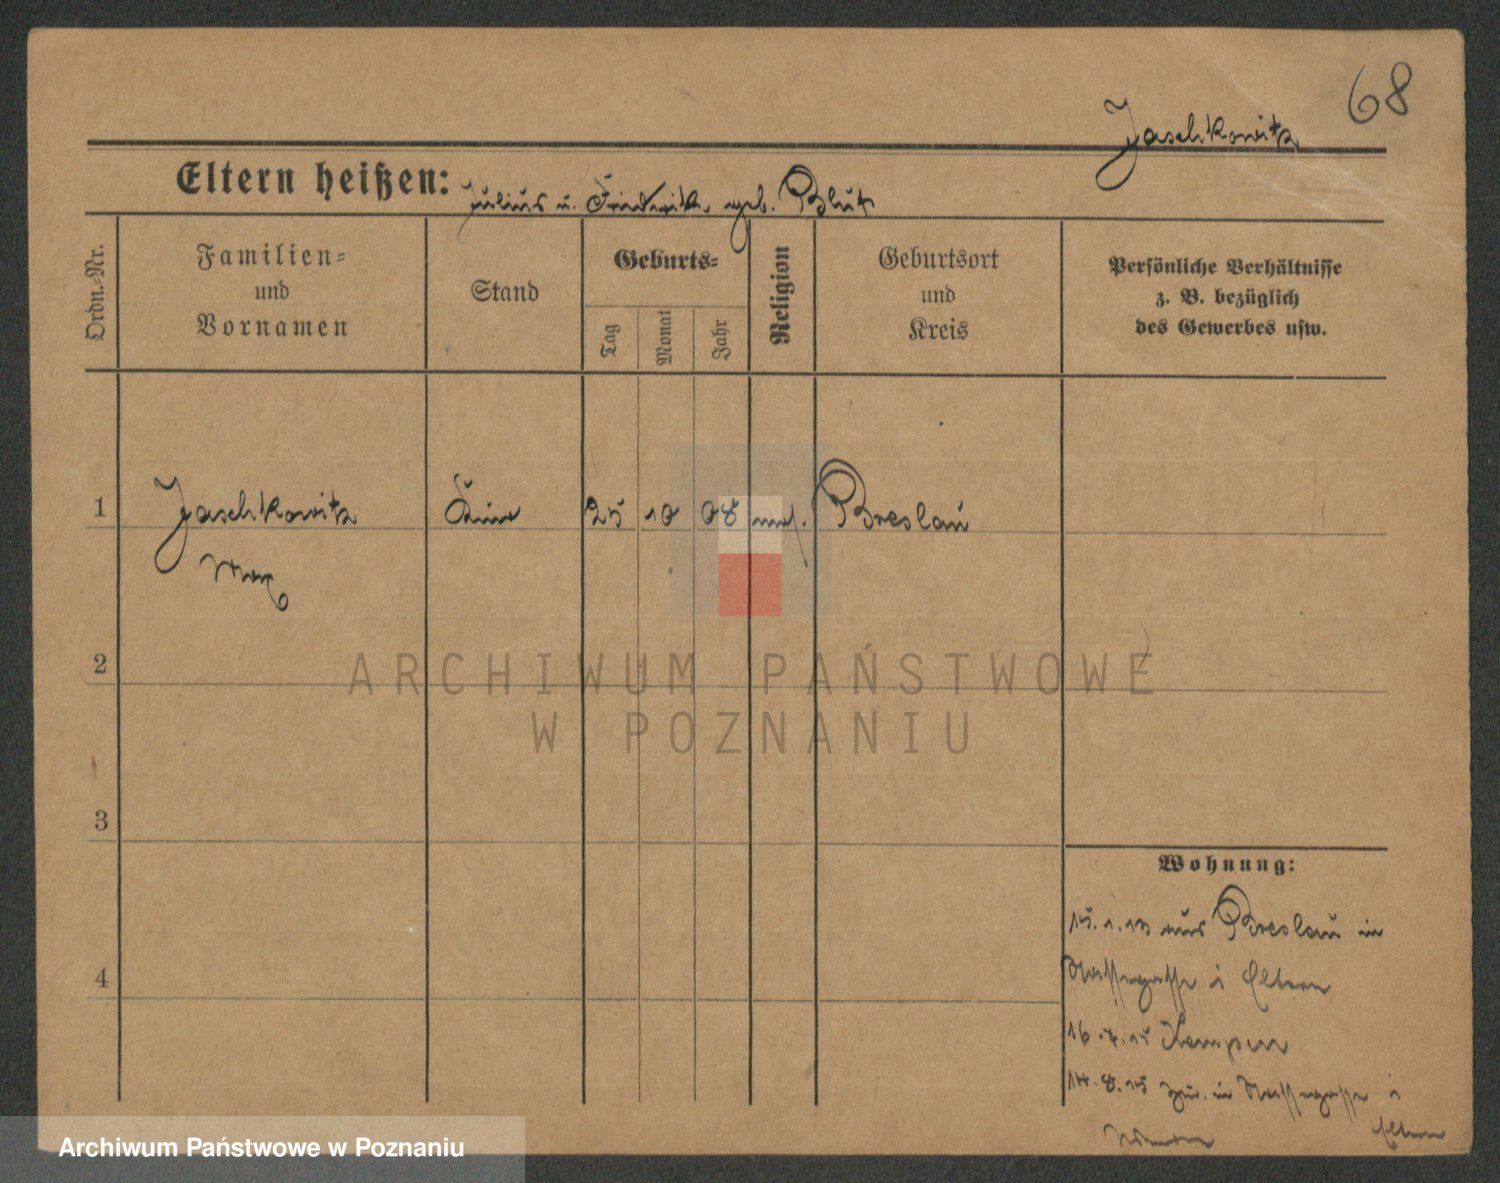 68
Jaschkowitz
Eltern heißen: Julius u. Friederike geb. Blut
Ordn.-Nr.
Familien-
und
Vornamen
Stand
Geburts-
Tag
Monat
Jahr
Religion
Geburtsort
und
Kreis
Persönliche Verhältnisse
z. B. bezüglich
des Gewerbes usw.
1
Jaschkowitz
Max
25
10
08
mos.
Breslau
2
ARCHIWUM PAŃSTWOWE
W POZNANIU
3
4
Wohnung:
15. 1. 13 aus Breslau in
Eltern
16. 7. 15 Kempen
14. 8. 15 zur. in
Eltern
Archiwum Państwowe w Poznaniu